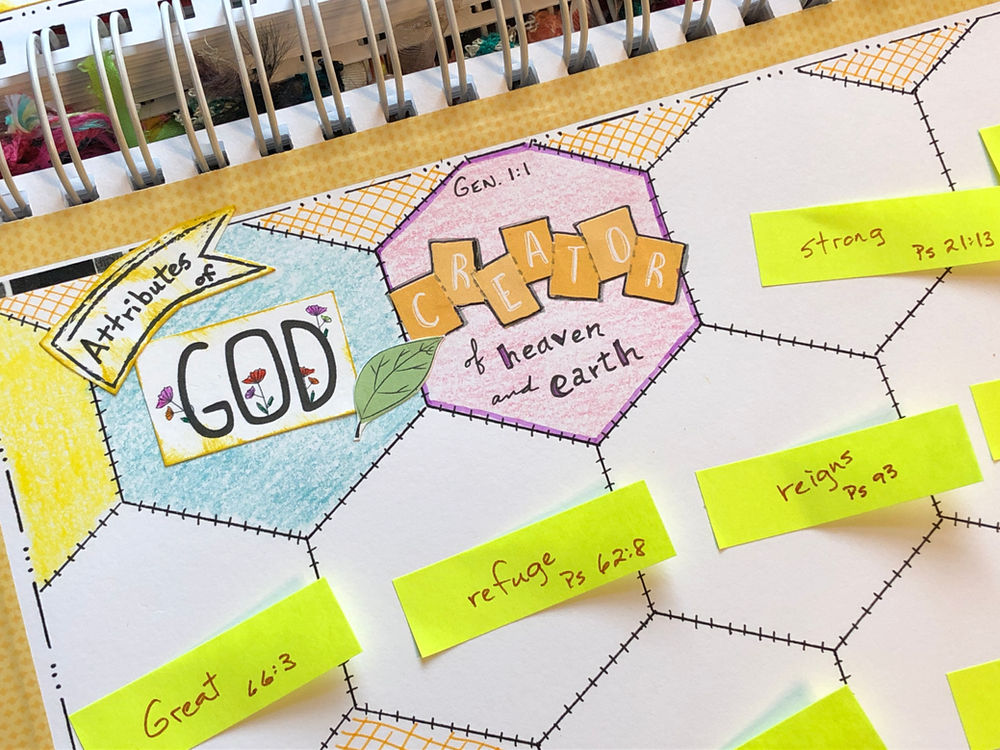 Attributes
of
GOD
GEN. 1:1
CREATOR
of heaven
and earth
strong
Ps 21:13
reigns
Ps 93
refuge
Ps 62:8
Great 66:3